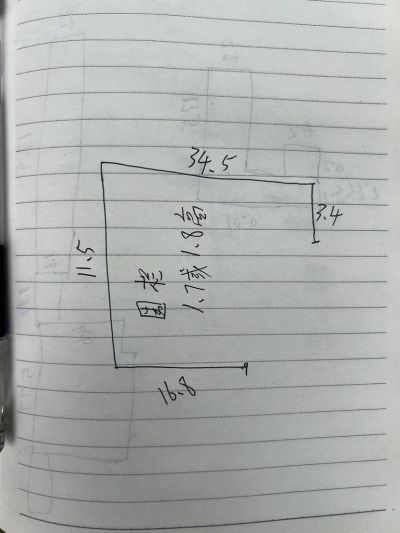 34.5
3.4
11.5
围栏
1.7或1.8高
16.8